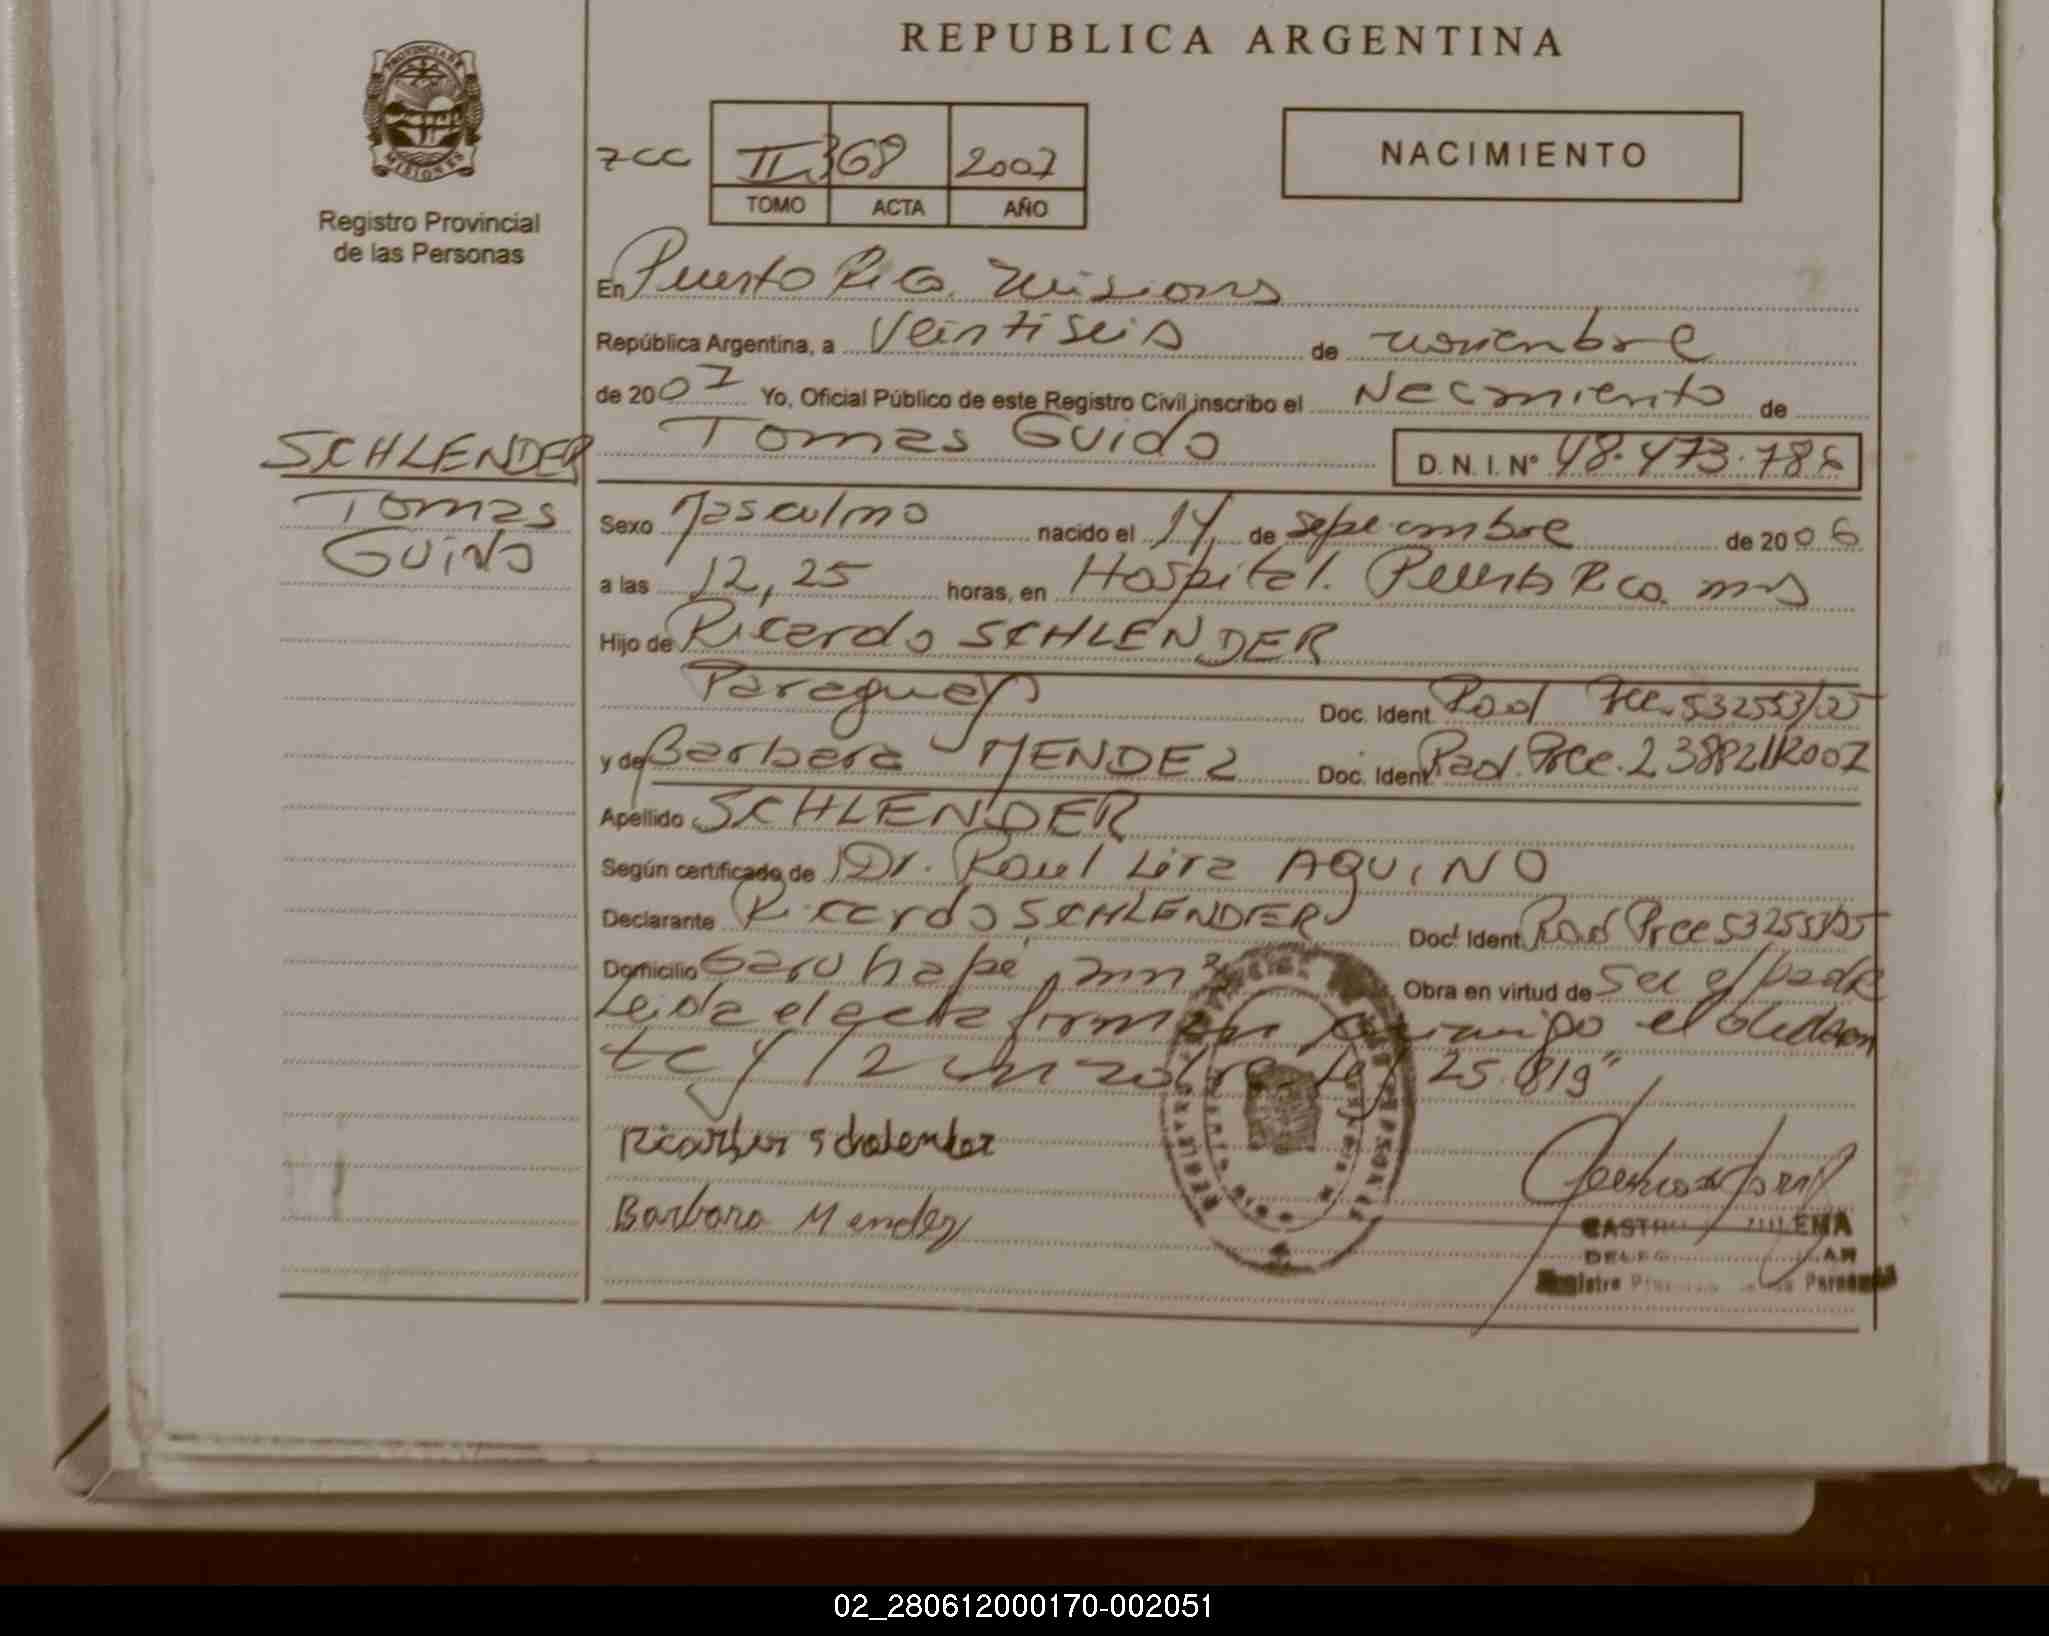 REPUBLICA ARGENTINA
PROVINCIA DE MISIONES
Registro Provincial
de las Personas
II 368 2007
TOMO ACTA AÑO
NACIMIENTO
En Puerto Rico. Misiones
República Argentina, a Veintiseis de noviembre
de 2007 Yo, Oficial Público de este Registro Civil inscribo el Nacimiento de
Tomas Guido D. N. I. Nº 48.473.786
SCHLENDER
Tomas
Guido
Sexo Masculino nacido el 14, de septiembre de 2006
a las 12,25 horas, en Hospital. Puerto Rico. mns
Hijo de Ricardo SCHLENDER
Paraguay Doc. Ident. Rad 532553/05
y de Barbara MENDEZ Doc. Ident. Rad. Prec. 238821/2007
Apellido SCHLENDER
Según certificado de Dr. Raul AQUINO
Declarante Ricardo SCHLENDER Doc. Ident. Rad Prec 532553/05
Domicilio Garuhapé mns Obra en virtud de ser el padre
Leida el acta firman conmigo el declaran
te y la Ley 25.819"
Schalender
Barbara Mendez
Registro Personas
02_280612000170-002051